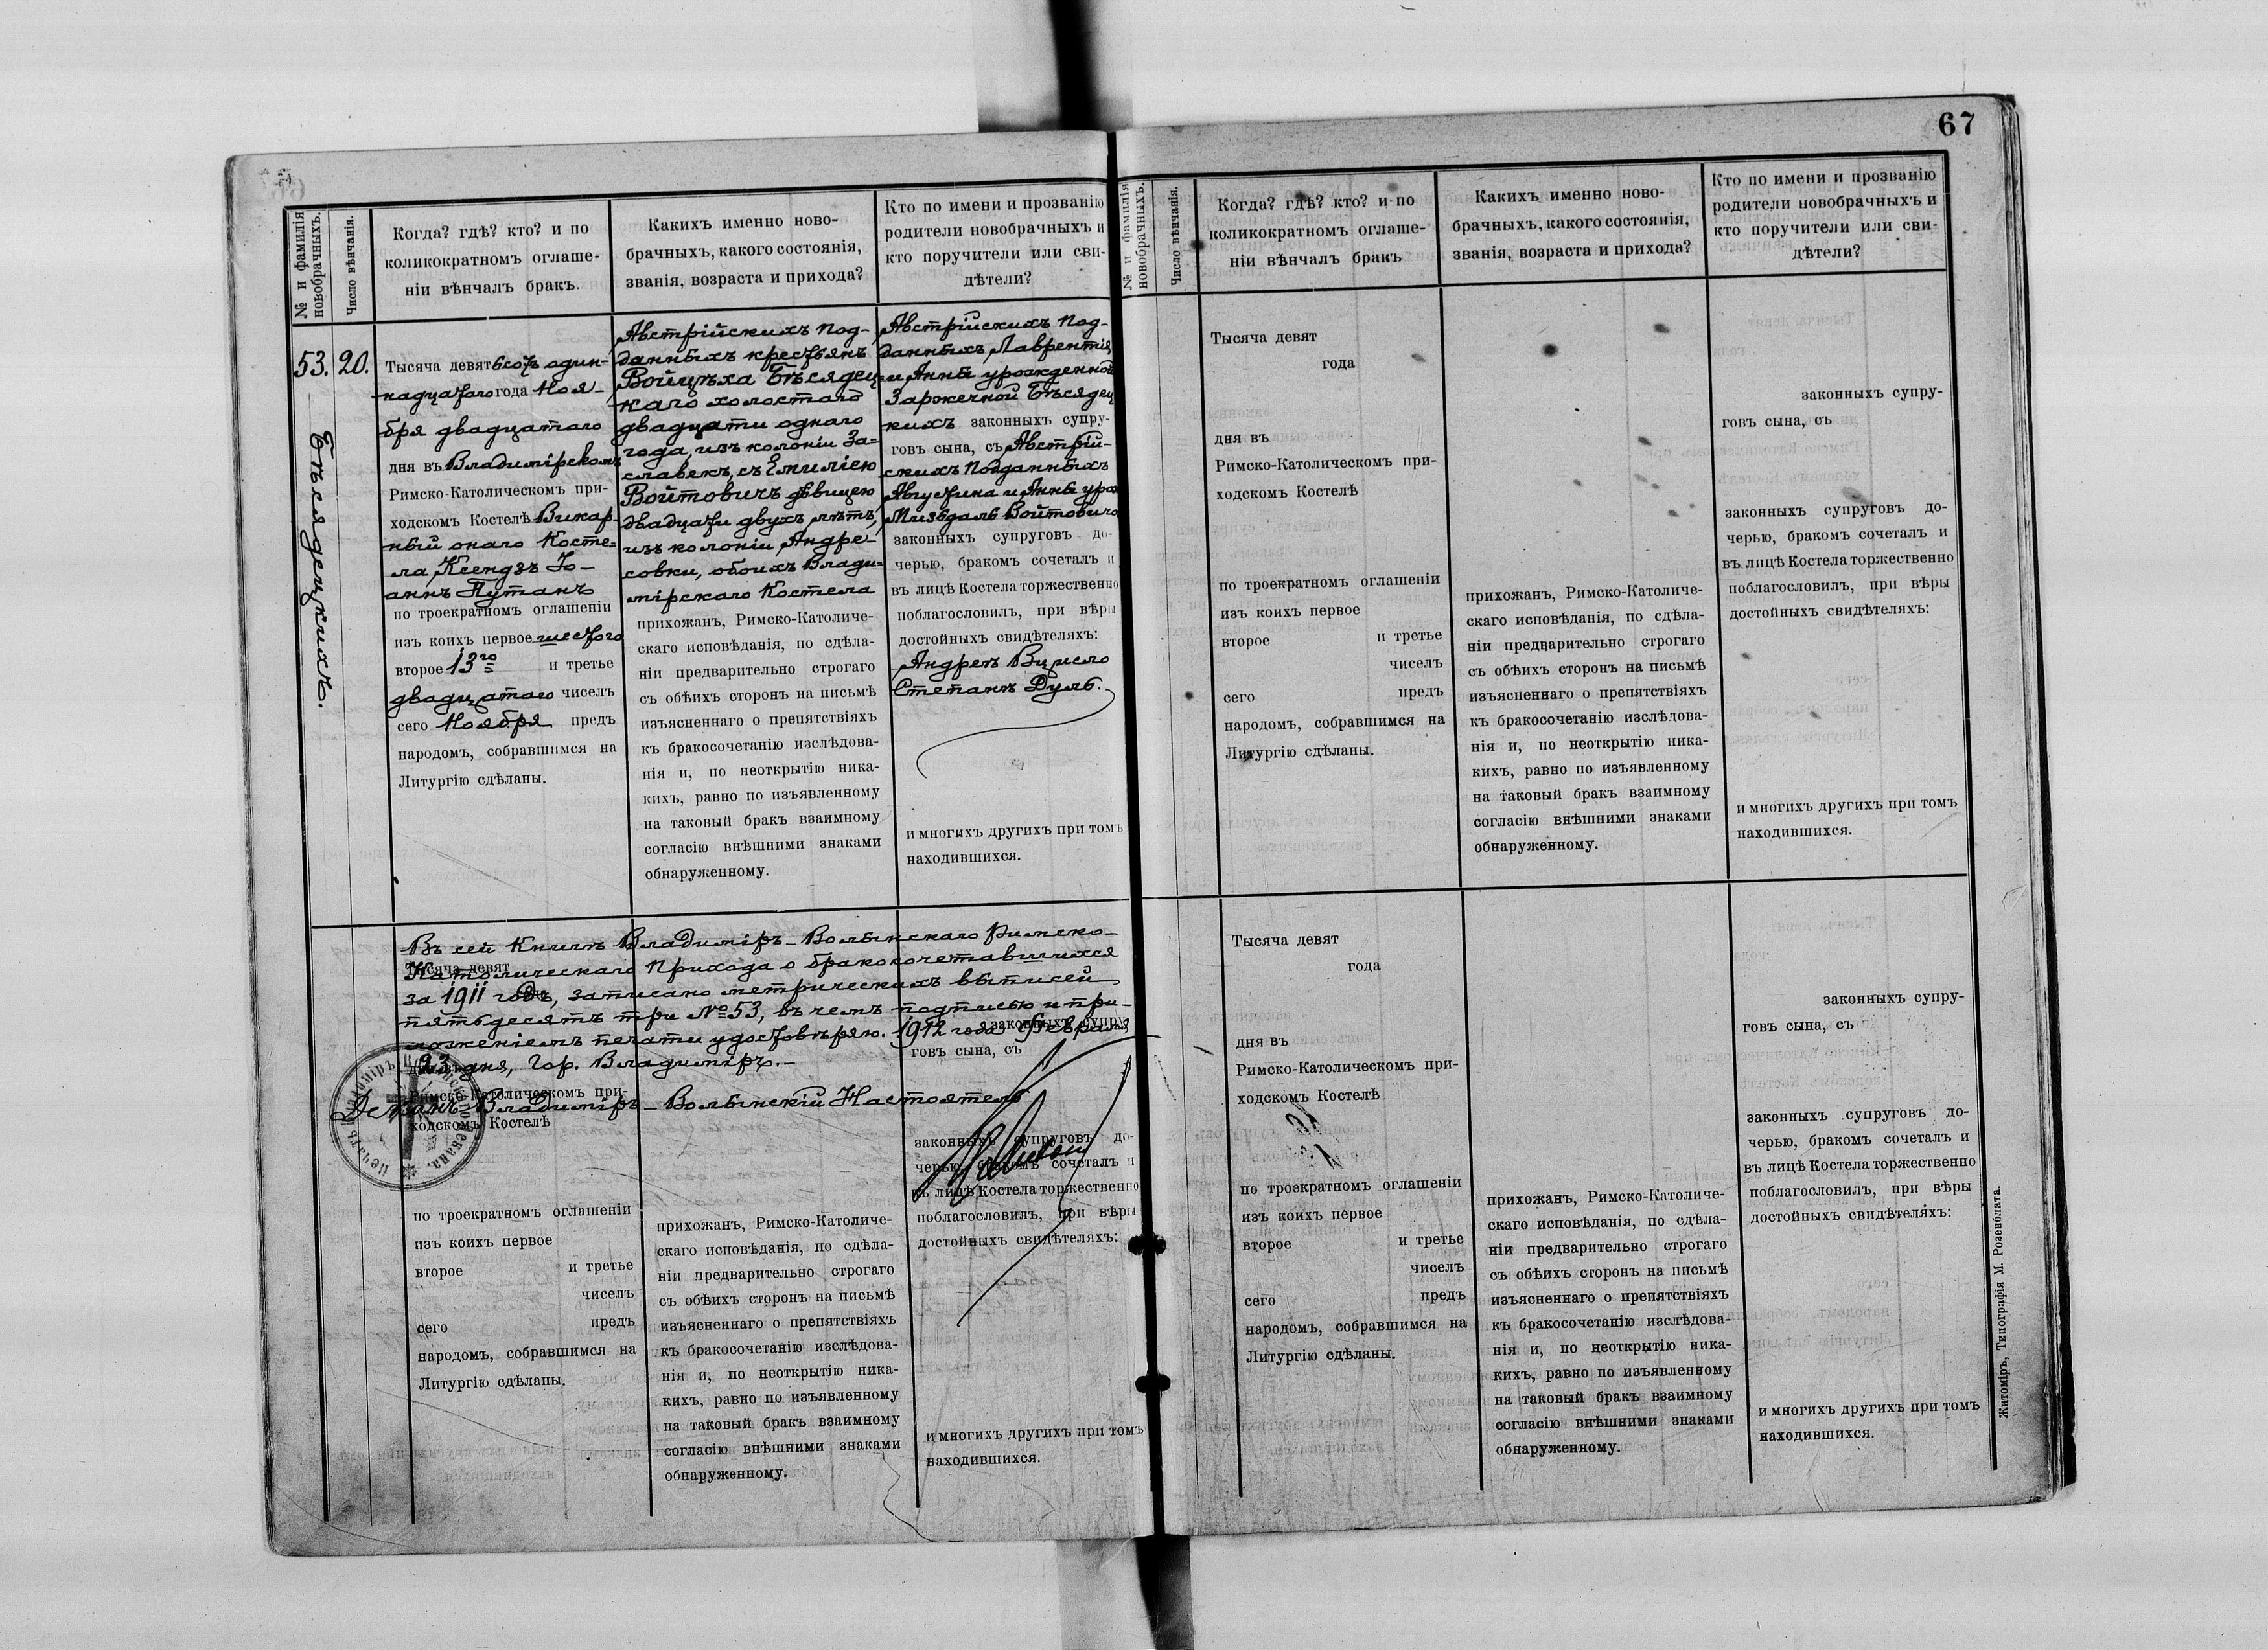 67
№ и фамилія
новобрачныхъ.
Число вѣнчанія.
Когда? гдѣ? кто? и по
коликократномъ оглаше-
ніи вѣнчалъ бракъ.
Какихъ именно ново-
брачныхъ, какого состоянія,
званія, возраста и прихода?
Кто по имени и прозванію
родители новобрачныхъ и
кто поручители или сви-
дѣтели?
53.
Бѣсядецкихъ.
20.
Тысяча девятьсотъ один-
надцатаго года Ноя-
бря двадцатаго
дня въ Владимірскомъ
Римско-Католическомъ при-
ходскомъ Костелѣ Викар-
ный онаго Косте-
ла Ксендзъ Іо-
аннъ Путанъ
по троекратномъ оглашеніи
изъ коихъ первое шестого
второе 13го и третье
двадцатаго числъ
сего Ноября предъ
народомъ, собравшимся на
Литургію сдѣланы.
Австрійскихъ под-
данныхъ крестьянъ
Войцѣха Бѣсядец-
каго холостаго
двадцати одного
года, изъ колоніи За-
славекъ, съ Емиліею
Войтовичъ дѣвицею
двадцати двухъ лѣтъ,
изъ колоніи Андре-
совки, обоихъ Влади-
мірскаго Костела
прихожанъ, Римско-Католиче-
скаго исповѣданія, по сдѣла-
ніи предварительно строгаго
съ обѣихъ сторонъ на письмѣ
изъясненнаго о препятствіяхъ
къ бракосочетанію изслѣдова-
нія и, по неоткрытію ника-
кихъ, равно по изъявленному
на таковый бракъ взаимному
согласію внѣшними знаками
обнаруженному.
Австрійскихъ под-
данныхъ Лаврентія
и Анны урожденной
Зарженчной Бѣсядец
кихъ законныхъ супру-
говъ сына, съ Австрій-
скихъ подданныхъ
Августина и Анны урож
Войтовичъ
законныхъ супруговъ до-
черью, бракомъ сочеталъ и
въ лицѣ Костела торжественно
поблагословилъ, при вѣры
достойныхъ свидѣтеляхъ:
Андреѣ
Степанѣ Дуль.
и многихъ другихъ при томъ
находившихся.
Въ сей Книгѣ Владиміръ-Волынскаго Римско-
Католическаго Прихода о бракосочетавшихся
за 1911 годъ, записано метрическихъ выписей
пятьдесятъ три №53, въ чемъ подписью и при-
ложеніемъ печати удостовѣряю. 1912 года Февраля
23 дня, Гор. Владиміръ.-
Деканъ Владиміръ-Волынскій Настоятель
Тысяча девят
законныхъ супру-
говъ сына, съ
Римско-Католическомъ при-
ходскомъ Костелѣ
по троекратномъ оглашеніи
изъ коихъ первое
второе и третье
числъ
сего предъ
народомъ, собравшимся на
Литургію сдѣланы.
прихожанъ, Римско-Католиче-
скаго исповѣданія, по сдѣла-
ніи предварительно строгаго
съ обѣихъ сторонъ на письмѣ
изъясненнаго о препятствіяхъ
къ бракосочетанію изслѣдова-
нія и, по неоткрытію ника-
кихъ, равно по изъявленному
на таковый бракъ взаимному
согласію внѣшними знаками
обнаруженному.
законныхъ супруговъ до-
черью, бракомъ сочеталъ и
въ лицѣ Костела торжественно
поблагословилъ, при вѣры
достойныхъ свидѣтеляхъ:
и многихъ другихъ при томъ
находившихся.
№ и фамилія
новобрачныхъ.
Число вѣнчанія.
Когда? гдѣ? кто? и по
коликократномъ оглаше-
ніи вѣнчалъ бракъ
Какихъ именно ново-
брачныхъ, какого состоянія,
званія, возраста и прихода?
Кто по имени и прозванію
родители новобрачныхъ и
кто поручители или сви-
дѣтели?
Тысяча девят
года
дня въ
Римско-Католическомъ при-
ходскомъ Костелѣ
по троекратномъ оглашеніи
изъ коихъ первое
второе и третье
числъ
сего предъ
народомъ, собравшимся на
Литургію сдѣланы.
прихожанъ, Римско-Католиче-
скаго исповѣданія, по сдѣла-
ніи предварительно строгаго
съ обѣихъ сторонъ на письмѣ
изъясненнаго о препятствіяхъ
къ бракосочетанію изслѣдова-
нія и, по неоткрытію ника-
кихъ, равно по изъявленному
на таковый бракъ взаимному
согласію внѣшними знаками
обнаруженному.
законныхъ супру-
говъ сына, съ
законныхъ супруговъ до-
черью, бракомъ сочеталъ и
въ лицѣ Костела торжественно
поблагословилъ, при вѣры
достойныхъ свидѣтеляхъ:
и многихъ другихъ при томъ
находившихся.
Тысяча девят
года
дня въ
Римско-Католическомъ при-
ходскомъ Костелѣ
по троекратномъ оглашеніи
изъ коихъ первое
второе и третье
числъ
сего предъ
народомъ, собравшимся на
Литургію сдѣланы.
прихожанъ, Римско-Католиче-
скаго исповѣданія, по сдѣла-
ніи предварительно строгаго
съ обѣихъ сторонъ на письмѣ
изъясненнаго о препятствіяхъ
къ бракосочетанію изслѣдова-
нія и, по неоткрытію ника-
кихъ, равно по изъявленному
на таковый бракъ взаимному
согласію внѣшними знаками
обнаруженному.
законныхъ супру-
говъ сына, съ
законныхъ супруговъ до-
черью, бракомъ сочеталъ и
въ лицѣ Костела торжественно
поблагословилъ, при вѣры
достойныхъ свидѣтеляхъ:
и многихъ другихъ при томъ
находившихся.
Житоміръ, Типографія М. Розенблата.